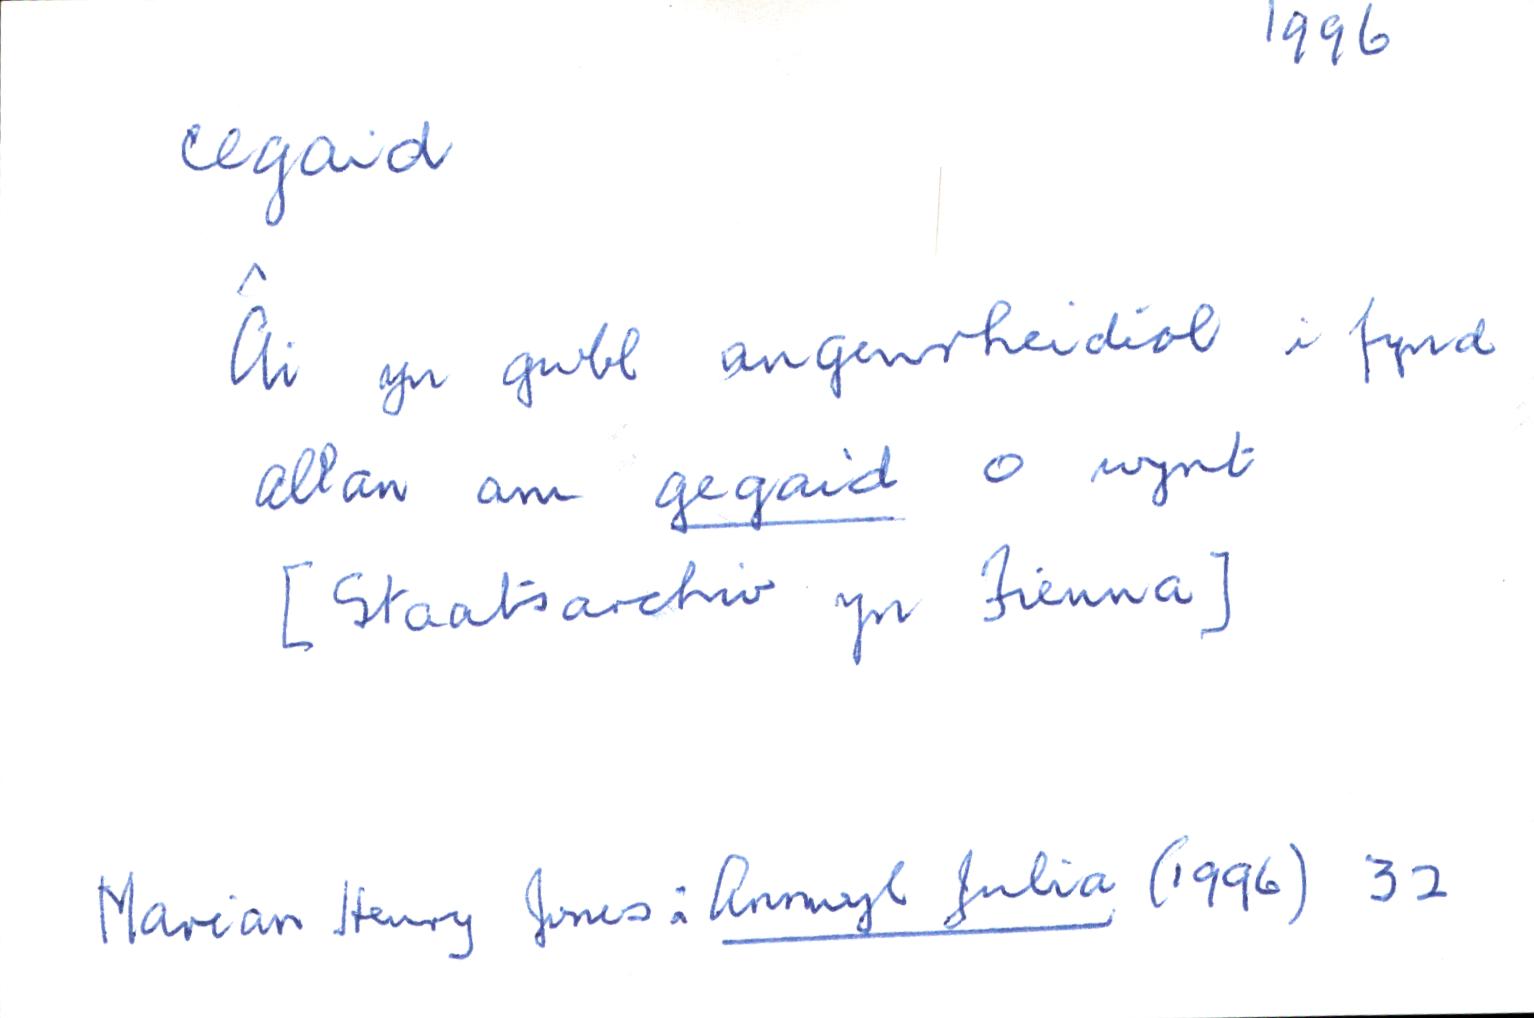 1996
cegaid
Âi yn gwbl angenrheidiol i fynd
allan am gegaid o wynt
[Staatsarchiv yn Fienna]
Marian Henry Jones: Annwyl Julia (1996) 32